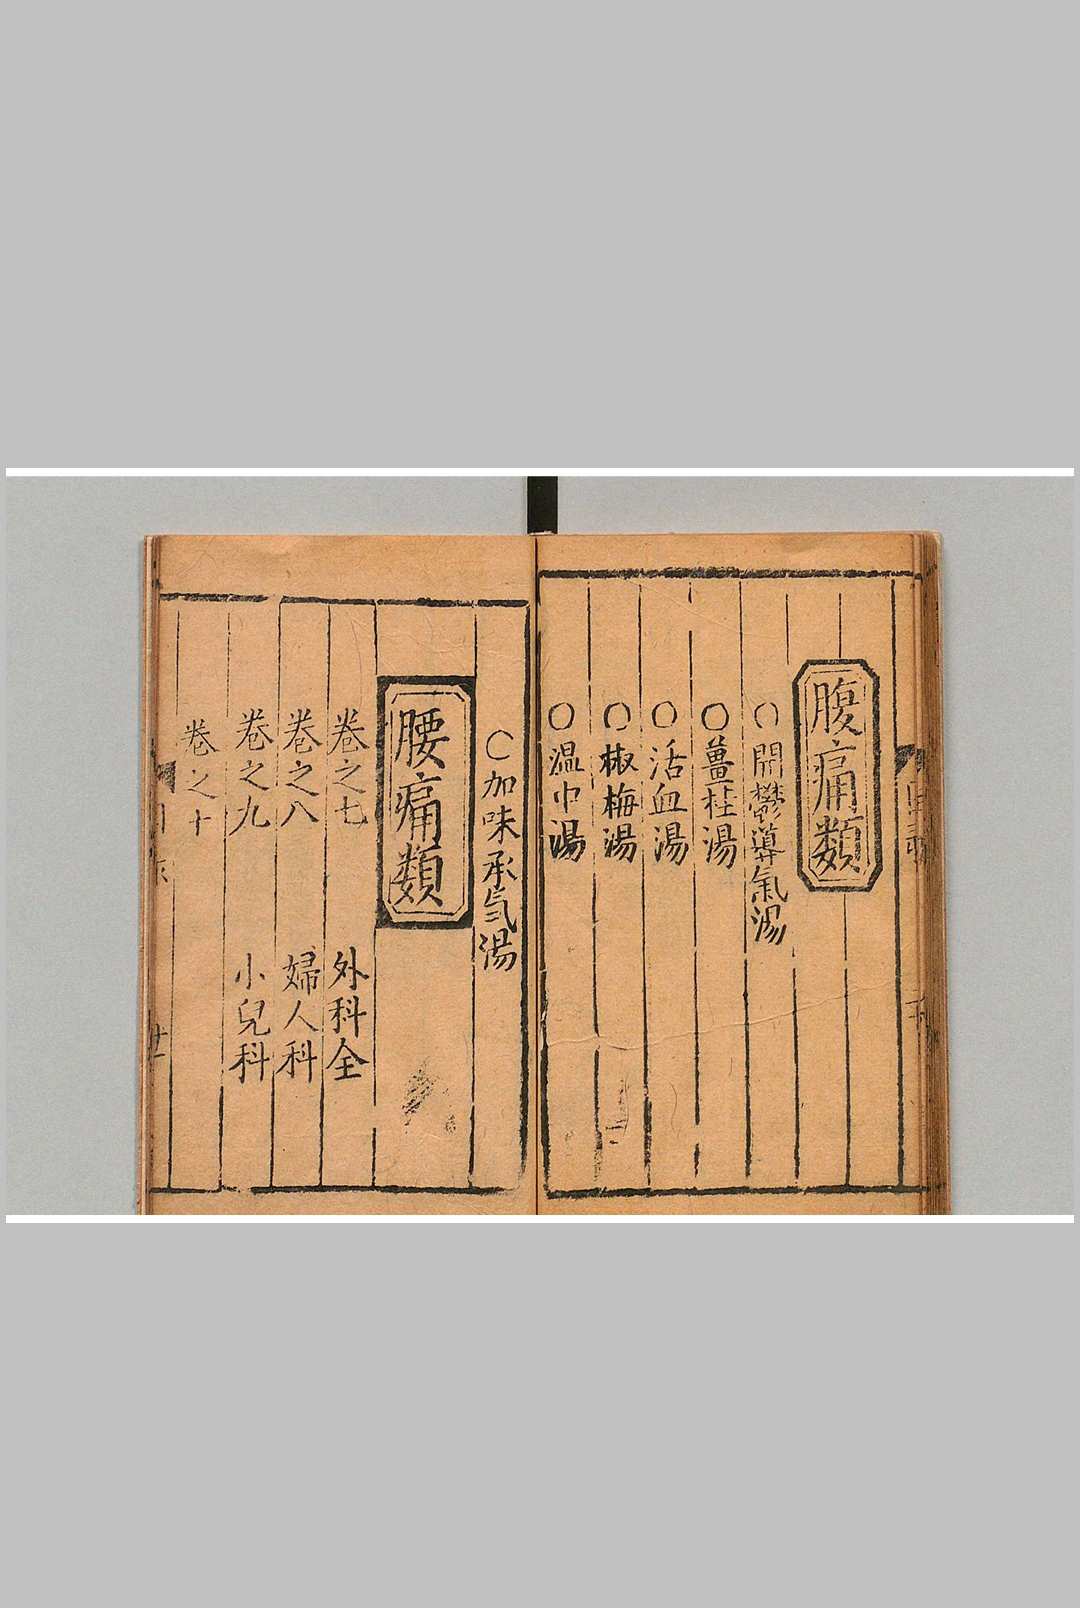 腹痛類
○開鬱導氣湯
○薑桂湯
○活血湯
○椒梅湯
○温中湯
○加味承氣湯
腰痛類
卷之七 外科全
卷之八 婦人科
卷之九 小兒科
卷之十